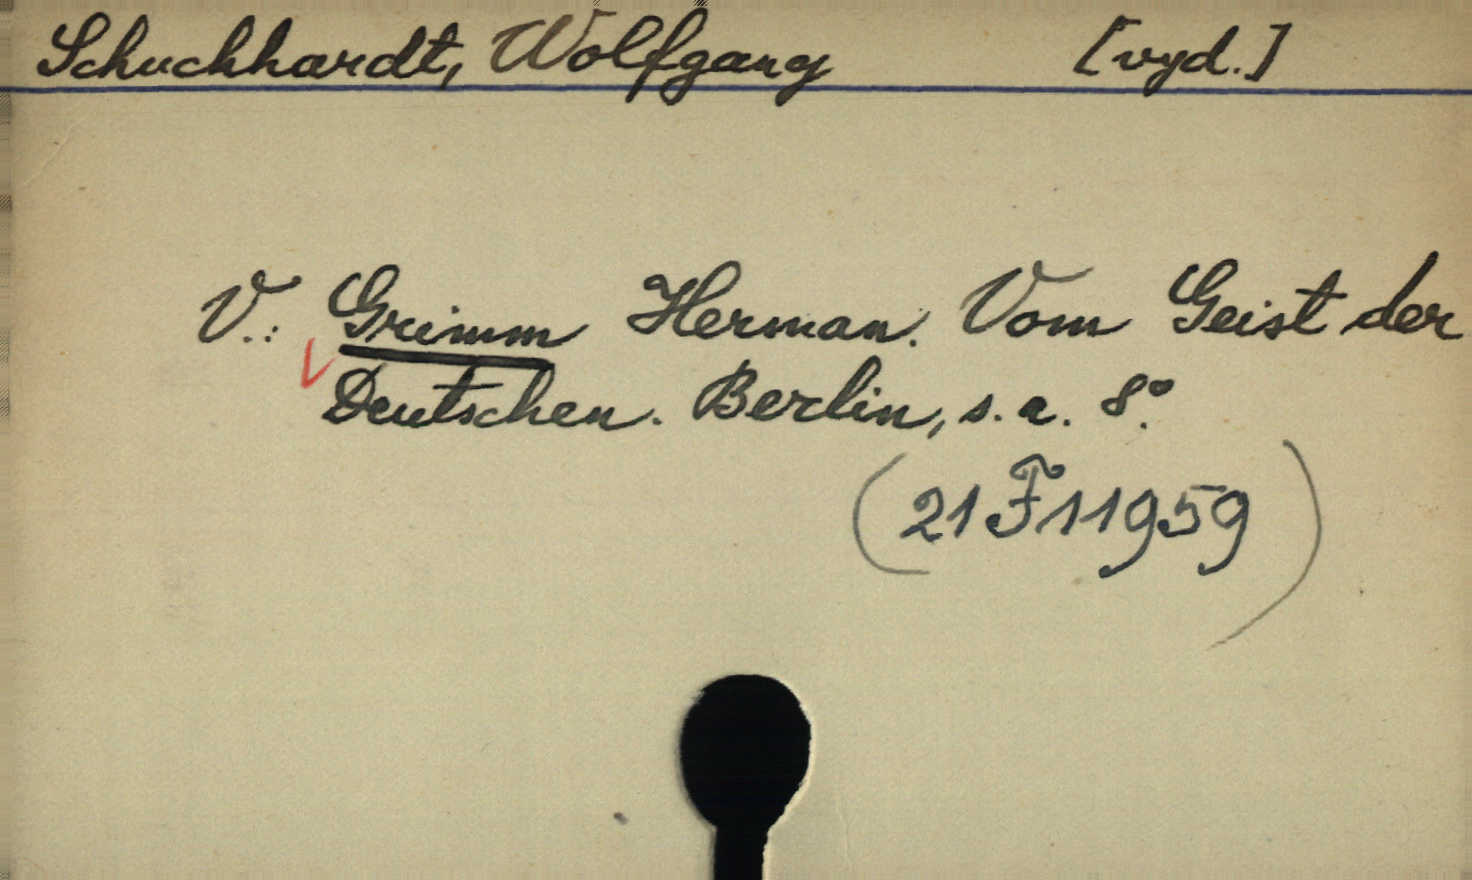 Schuchhardt, Wolfgang [vyd.]
V.: Grimm Herman. Vom Geist der
Deutschen. Berlin, s. a. 8°.
(21 F 11959)